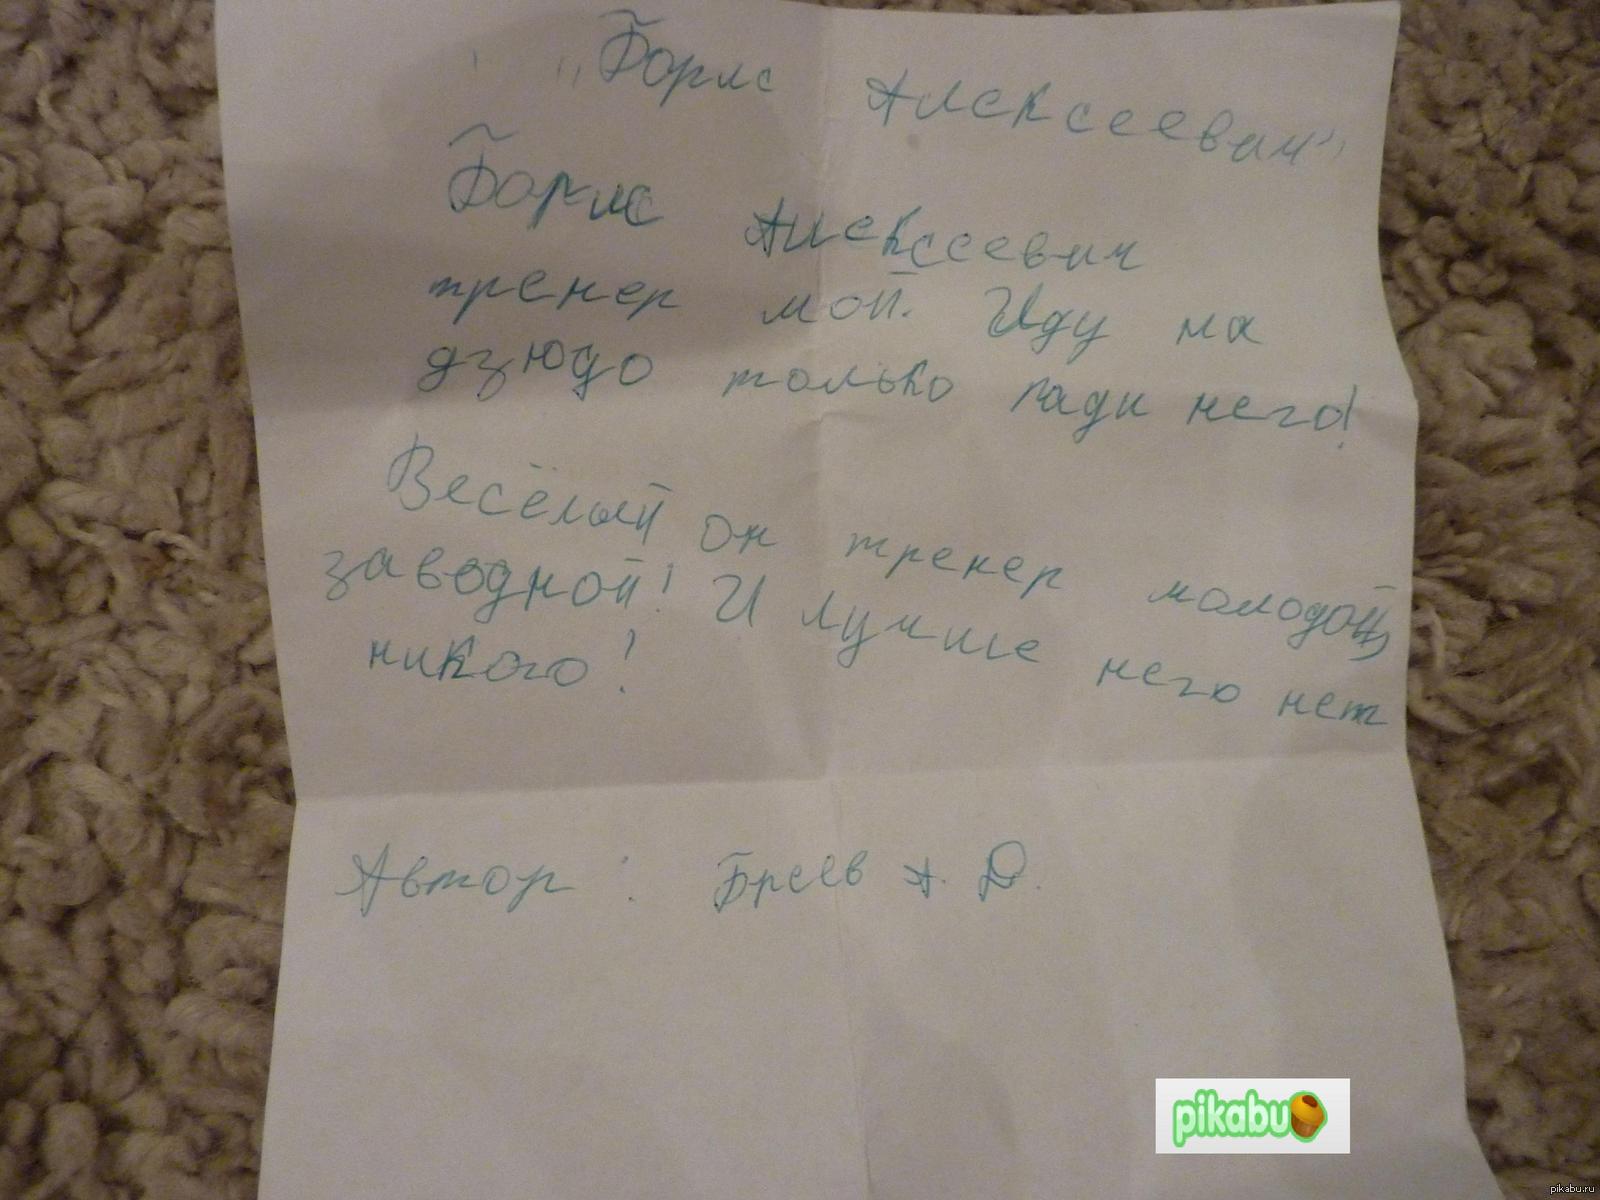 "Борис Алексеевич"
Борис Алексеевич
тренер мой. Иду на
дзюдо только ради него!
Весёлый он тренер молодой,
заводной! И лучше него нет
никого!
Автор: Бреев А. Д.
pikabu
pikabu.ru